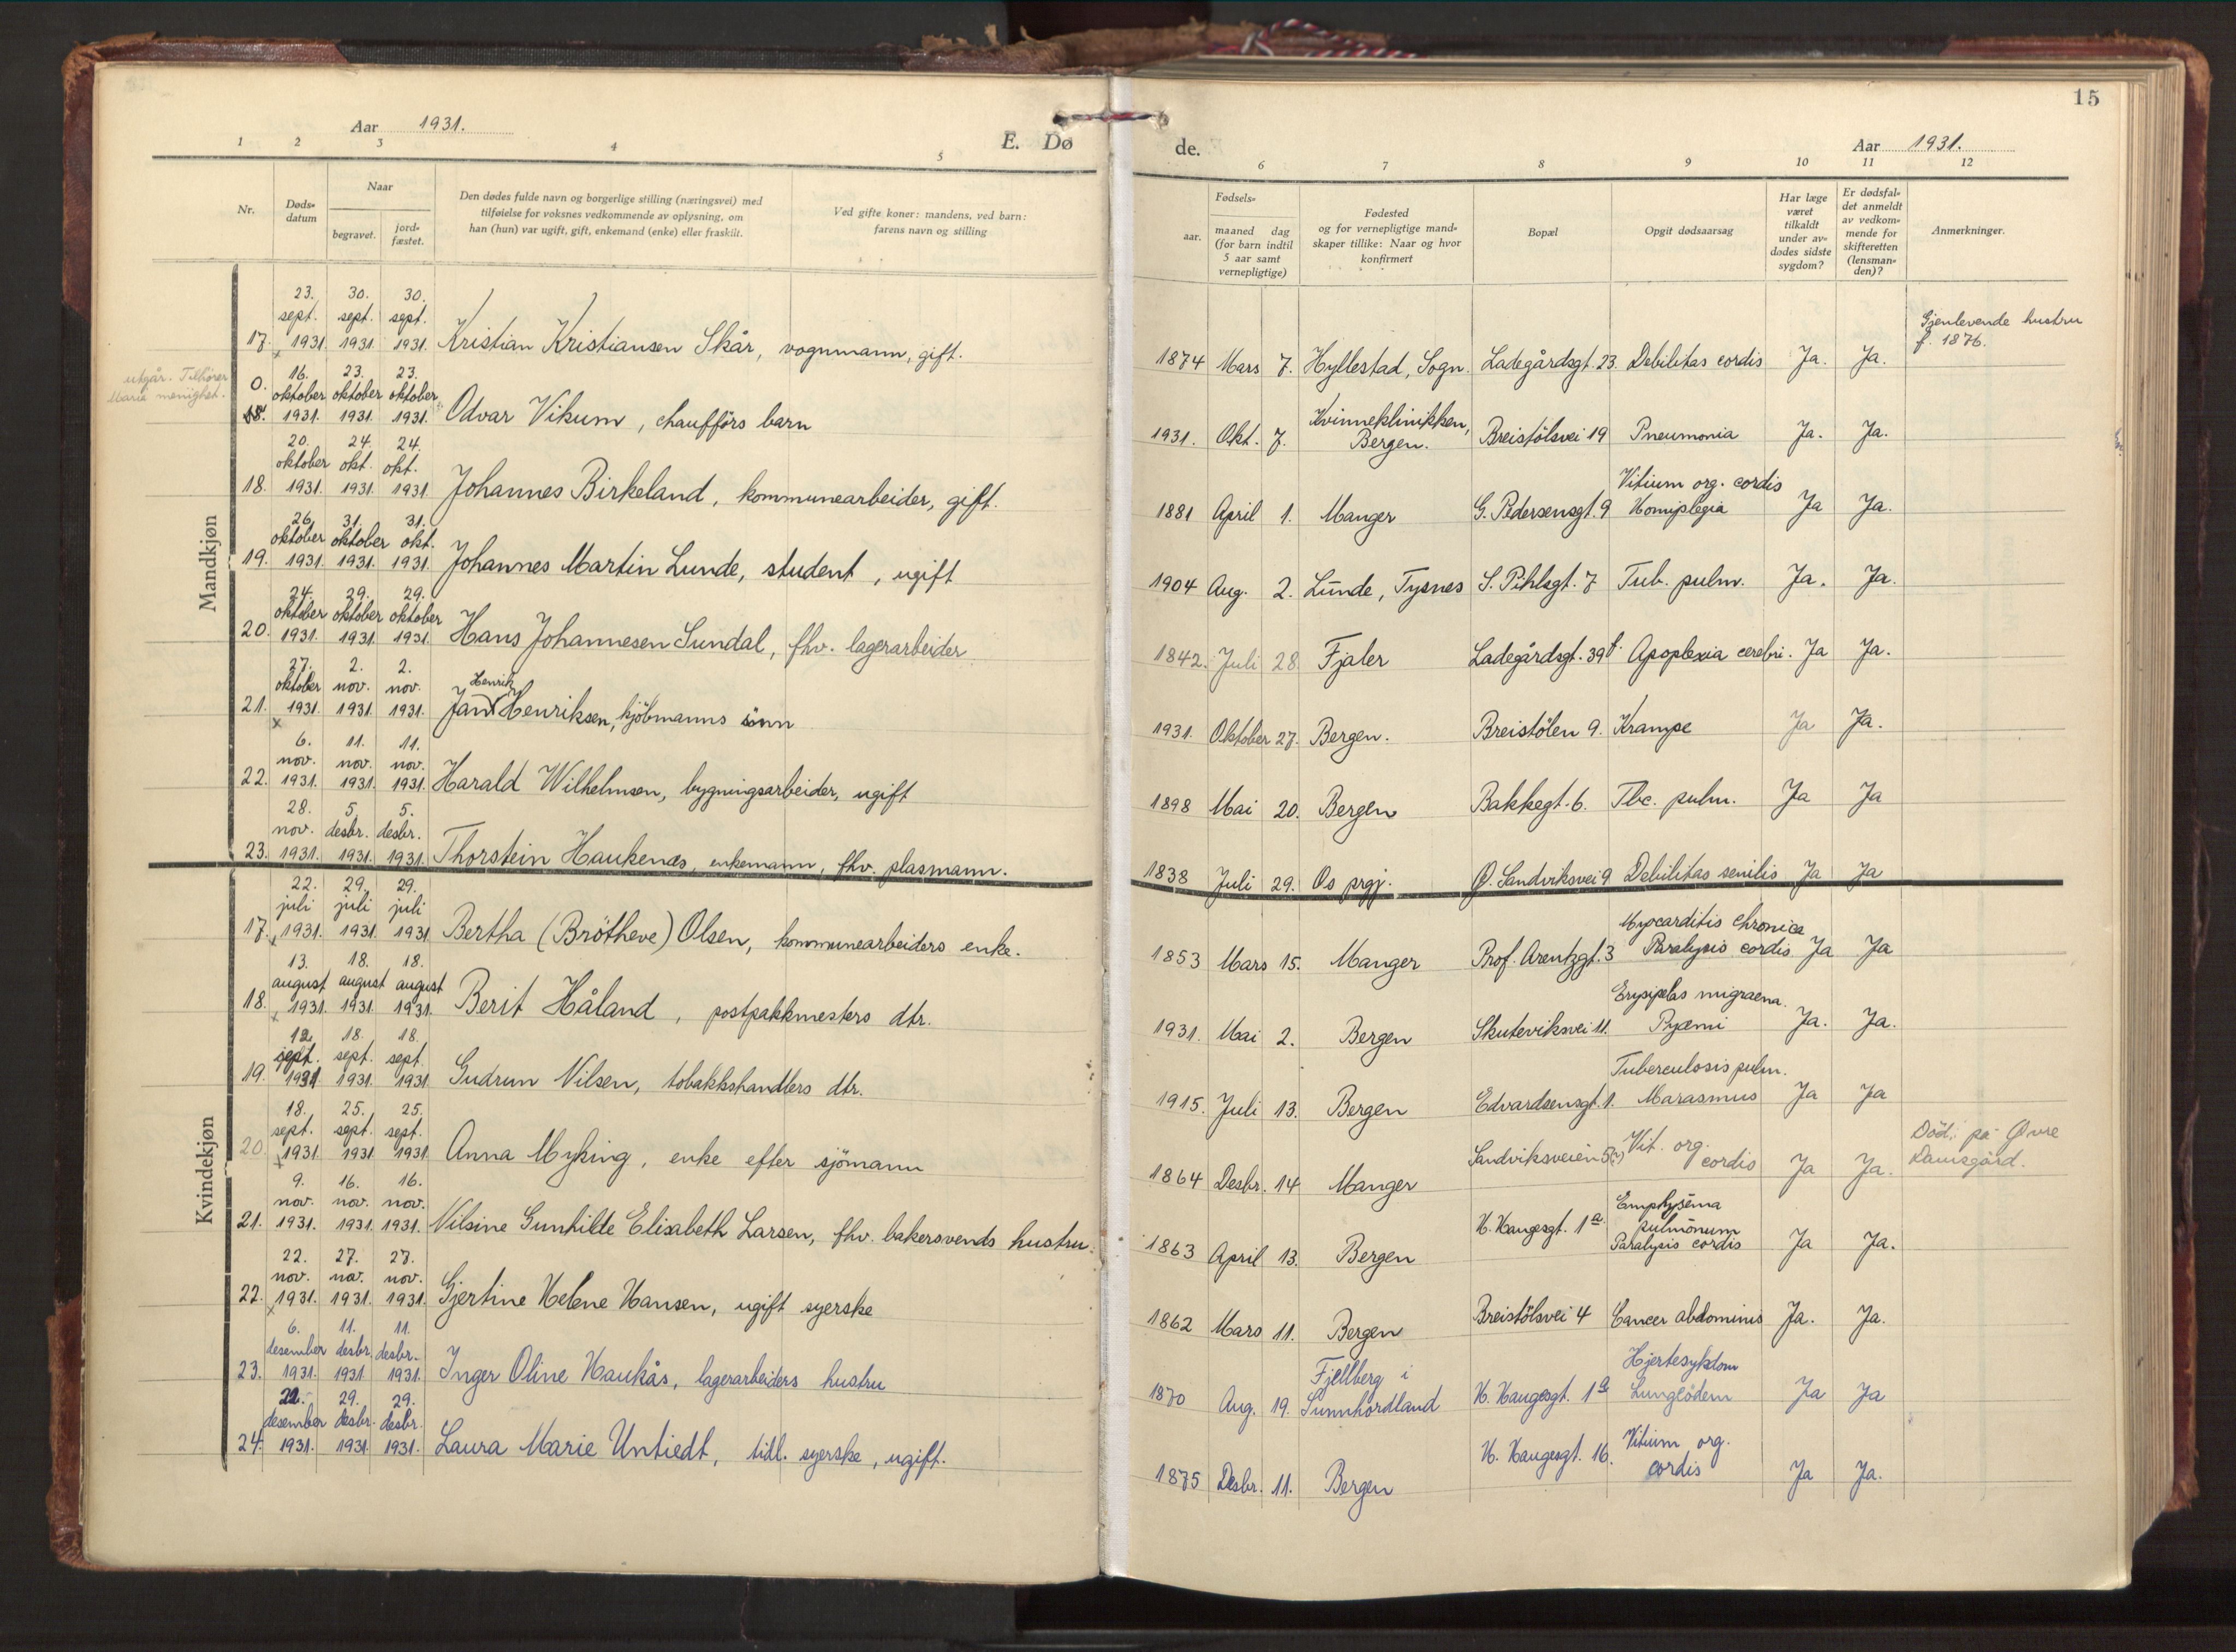 15
Aar 1931.
E. Dø
de.
Aar 1931.
1 2 3 4 5
6 7 8 9 10 11 12
Nr.
Døds-
datum
Naar
begravet.
jord-
fæstet.
Den dødes fulde navn og borgerlige stilling (næringsvei) med
tilføielse for voksnes vedkommende av oplysning, om
han (hun) var ugift, gift, enkemand (enke) eller fraskilt.
Ved gifte koner: mandens, ved barn:
farens navn og stilling
Fødsels-
aar.
maaned dag
(for barn indtil
5 aar samt
vernepligtige)
Fødested
og for vernepligtige mand-
skaper tillike: Naar og hvor
konfirmert
Bopæl
Opgit dødsaarsag
Har læge
været
tilkaldt
under av-
dødes sidste
sygdom?
Er dødsfal-
det anmeldt
av vedkom-
mende for
skifteretten
(lensman-
den)?
Anmerkninger.
Mandkjøn
23. 30. 30.
sept. sept. sept.
17. 1931. 1931. 1931. Kristian Kristiansen Skår, vognmann, gift.
1874 Mars 7. Hyllestad, Sogn. Ladegårdsgt. 23. Debilitas cordis Ja. Ja.
Gjenlevende hustru
f. 1876.
utgår. Tilhører
Maria menighet.
16. 23. 23.
0. oktober oktober oktober
18. 1931. 1931. 1931. Odvar Vikum, chaufförs barn
Kvinneklinikken,
1931. Okt. 7. Bergen. Breistölsvei 19 Pneumonia Ja. Ja.
20. 24. 24.
oktober okt. okt.
18. 1931. 1931. 1931 Johannes Birkeland, kommunearbeider, gift.
Vitium org. cordis
1881 April 1. Manger G. Pedersensgt. 9 Hemiplegia Ja Ja.
26. 31. 31.
oktober oktober okt.
19. 1931. 1931. 1931. Johannes Martin Lunde, student, ugift
1904 Aug. 2. Lunde, Tysnes S. Pihlsgt. 7 Tub. pulm. Ja. Ja.
24. 29. 29.
oktober oktober oktober
20. 1931. 1931. 1931. Hans Johannesen Sundal, fhv. lagerarbeider
1842. Juli 28. Fjaler Ladegårdsgt. 39 f. Apoplexia cerebri. Ja Ja.
27. 2. 2.
oktober nov. nov. Henrik
21. 1931. 1931. 1931. Jan Henriksen, kjöbmanns sönn
1931. Oktober 27. Bergen. Breistölen 9. Krampe Ja Ja.
6. 11. 11.
nov. nov. nov.
22. 1931. 1931. 1931. Harald Wilhelmsen, bygningsarbeider, ugift
1898 Mai 20. Bergen Bakkegt. 6. Tbc. pulm. Ja Ja
28. 5. 5.
nov. desbr. desbr.
23. 1931. 1931. 1931. Thorstein Haukenæs, enkemann, fhv. plasmann.
1838 Juli 29. Os prgj. Ø. Sandviksvei 9 Debilitas senilis Ja Ja
Kvindekjøn
22. 29. 29.
juli juli juli
17. 1931. 1931. 1931 Bertha (Brötheve) Olsen, kommunearbeiders enke.
Myocarditis chronica
1853 Mars 15. Manger Prof. Arentzgt. 3 Paralysis cordis Ja Ja
13. 18. 18.
august august august
18. 1931. 1931. 1931. Berit Håland, postpakkmesters dtr.
Erysipelas migraena.
1931. Mai 2. Bergen Skuteviksvei 11. Pyæmi Ja. Ja.
12. 18. 18.
sept. sept. sept.
19. 1931 1931. 1931 Gudrun Nilsen, tobakkshandlers dtr.
Tuberculosis pulm.
1915. Juli 13. Bergen Edvardsensgt. 1. Marasmus Ja Ja
18. 25. 25.
sept. sept. sept.
20. 1931. 1931 1931 Anna Myking, enke efter sjömann
Sandviksveien 5(?) Vit. org.
1864 Desbr. 14 Manger cordis Ja Ja.
Död: på Øvre
Damsgård.
9. 16. 16.
nov. nov. nov.
21. 1931. 1931. 1931. Nilsine Gunhilde Elisabeth Larsen, fhv. bakersvends hustru.
H. Haugesgt. 1a Emphysema
pulmonum
1863 April 13. Bergen Paralysis cordis Ja Ja.
22. 27. 27.
nov. nov. nov.
22. 1931. 1931. 1931. Gjertine Helene Hansen, ugift syerske
1862 Mars 11. Bergen Breistölsvei 4 Cancer abdominis Ja. Ja.
6. 11. 11.
desember desbr. desbr.
23. 1931. 1931. 1931. Inger Oline Haukås, lagerarbeiders hustru
Fjellberg i Hjertesykdom
1870 Aug. 19. Sunnhordland H. Haugesgt. 1a Lungeödem Ja Ja
22. 29. 29.
desember desbr. desbr.
24. 1931. 1931. 1931. Laura Marie Untiedt, tidl. syerske, ugift.
H. Haugesgt. 16. Vitium org.
1875 Desbr. 11. Bergen cordis Ja Ja.